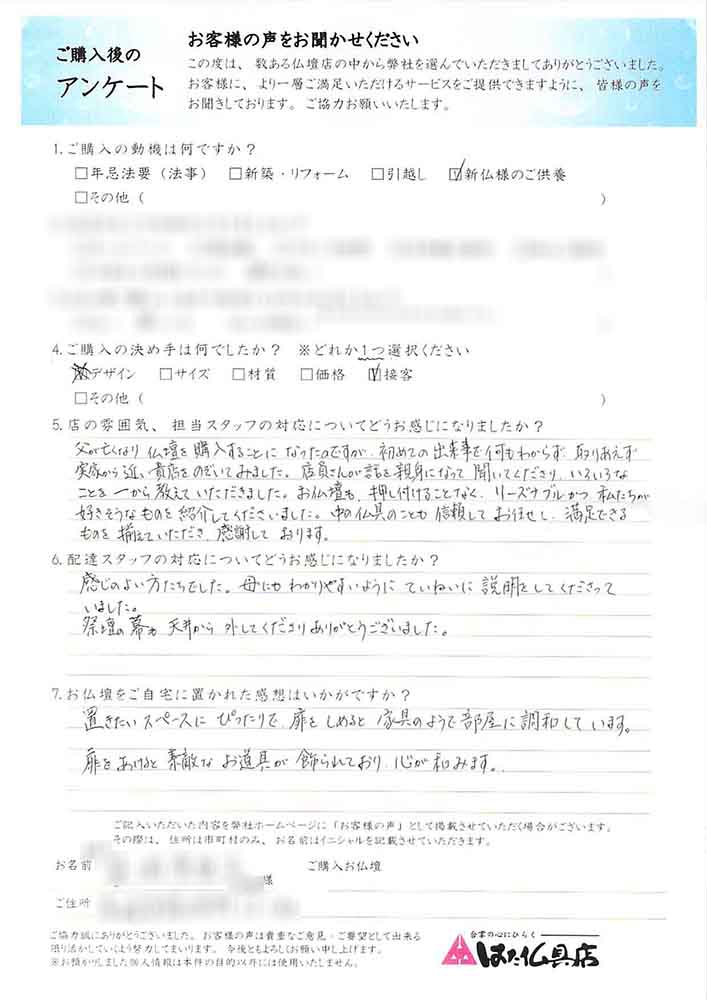 ご購入後の
アンケート
お客様の声をお聞かせください
この度は、数ある仏壇店の中から弊社を選んでいただきましてありがとうございました。
お客様に、より一層ご満足いただけるサービスをご提供できますように、皆様の声を
お聞きしております。ご協力お願いいたします。
1.ご購入の動機は何ですか？
□年忌法要（法事） □新築・リフォーム □引越し ☑新仏様のご供養
□その他（ ）
4.ご購入の決め手は何でしたか？ ※どれか1つ選択ください
☒デザイン □サイズ □材質 □価格 ☑接客
□その他（ ）
5.店の雰囲気、担当スタッフの対応についてどうお感じになりましたか？
父が亡くなり仏壇を購入することになったのですが、初めての出来事で何もわからず、取りあえず
実家から近い貴店をのぞいてみました。店員さんが話を親身になって聞いてくださり、いろいろな
ことを一から教えていただきました。お仏壇も、押し付けることなく、リーズナブルかつ私たちが
好きそうなものを紹介してくださいました。中の仏具のことも信頼してお任せし、満足できる
ものを揃えていただき、感謝しております。
6.配達スタッフの対応についてどうお感じになりましたか？
感じのよい方たちでした。母にもわかりやすいように ていねいに説明をしてくださって
いました。
祭壇の幕も天井から外してくださりありがとうございました。
7.お仏壇をご自宅に置かれた感想はいかがですか？
置きたいスペースに ぴったりで、扉をしめると家具のようで部屋に調和しています。
扉をあけると素敵なお道具が飾られており、心が和みます。
ご記入いただいた内容を弊社ホームページに「お客様の声」として掲載させていただく場合がございます。
その際は、住所は市町村のみ、お名前はイニシャルを記載させていただきます。
お名前 様 ご購入お仏壇
ご住所
ご協力誠にありがとうございました。お客様の声は貴重なご意見・ご要望として出来る
限り活かしていくよう努力してまいります。今後ともよろしくお願い申し上げます。
※お預かりしました個人情報は本件の目的以外には使用いたしません。
合掌の心にひらく
はた仏具店